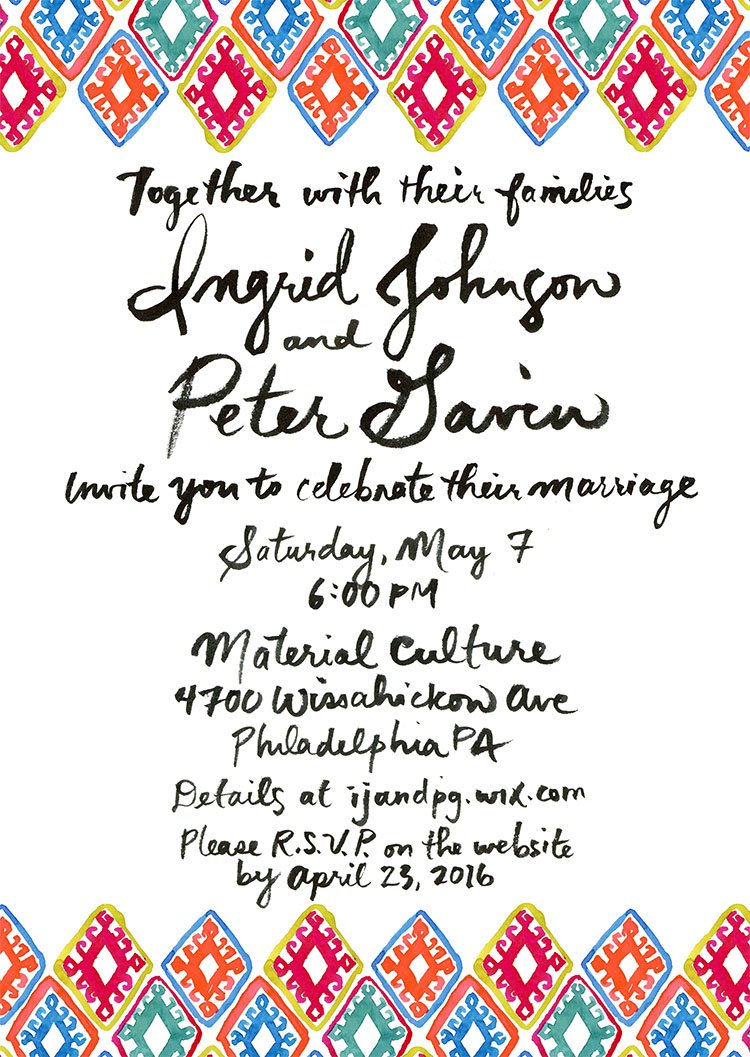 Together with their families
Ingrid Johnson
and
Peter Gavin
invite you to celebrate their marriage
Saturday, May 7
6:00 PM
Material Culture
4700 Wissahickon Ave
Philadelphia PA
Details at ijandpg.wix.com
Please R.S.V.P. on the website
by April 23, 2016